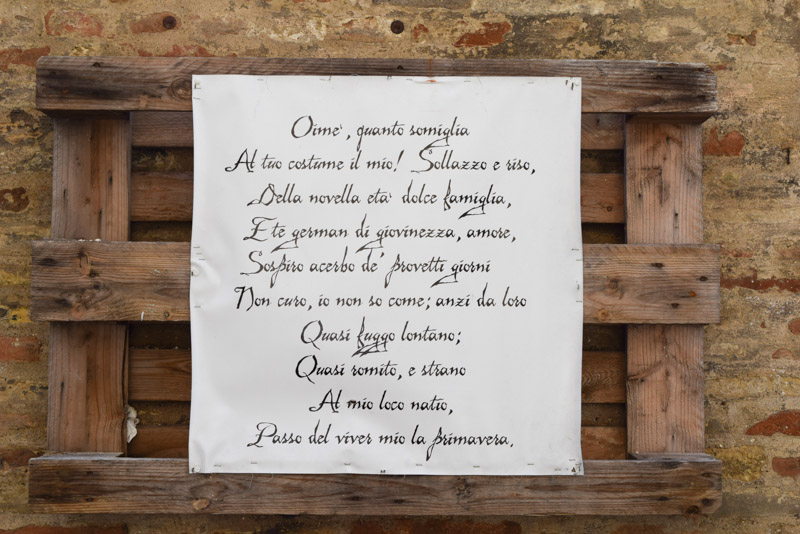 Oimè, quanto somiglia
Al tuo costume il mio! Sollazzo e riso,
Della novella età dolce famiglia,
E te german di giovinezza, amore,
Sospiro acerbo de' provetti giorni
Non curo, io non so come; anzi da loro
Quasi fuggo lontano;
Quasi romito, e strano
Al mio loco natio,
Passo del viver mio la primavera.